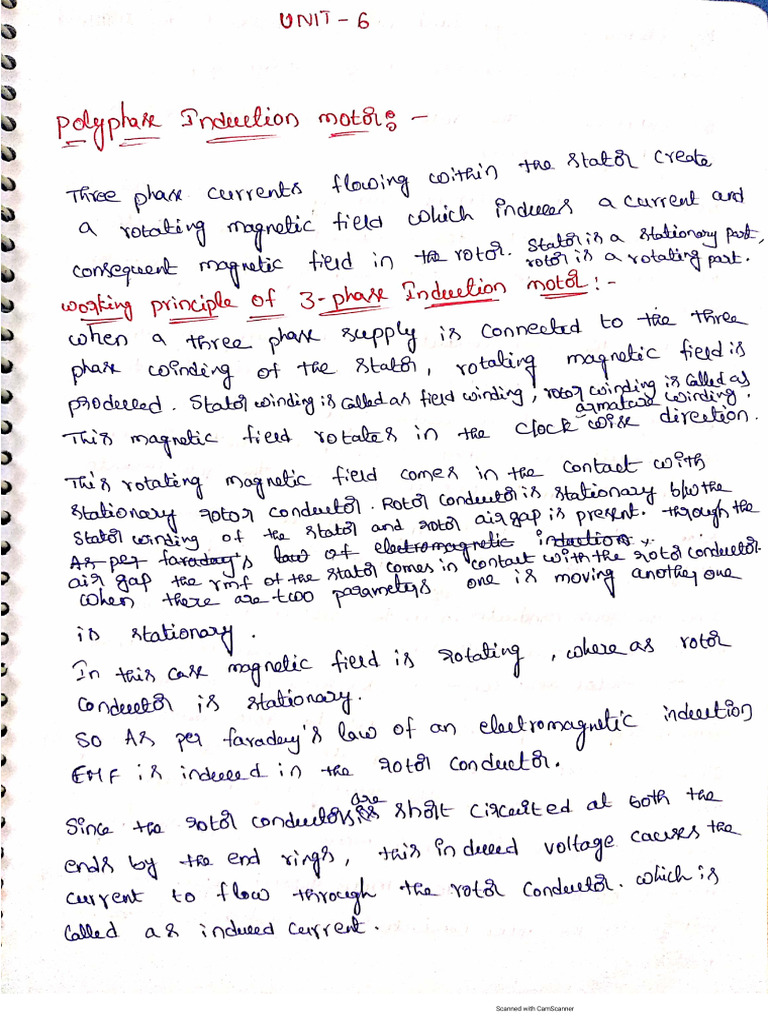 UNIT - 6
Polyphase Induction motor:-
Three phase currents flowing within the stator create
a rotating magnetic field which induces a current and
consequent magnetic field in the rotor. Stator is a stationary part,
rotor is a rotating part.
working principle of 3-phase Induction motor:-
when a three phase supply is connected to the three
phase winding of the stator, rotating magnetic field is
produced. Stator winding is called as field winding, rotor winding is called as
armature winding.
This magnetic field rotates in the clock wise direction.
This rotating magnetic field comes in the contact with
stationary rotor conductor. Rotor conductor is stationary b/w the
stator winding of the stator and rotor airgap is present. through the
As per faraday's law of electromagnetic induction,
air gap the rmf of the stator comes in contact with the rotor conductor.
when there are two parameters one is moving another one
is stationary.
In this case magnetic field is rotating, where as rotor
conductor is stationary.
So As per faraday's law of an electromagnetic induction
EMF is induced in the rotor conductor.
Since the rotor conductors are short circuited at both the
ends by the end rings, this induced voltage causes the
current to flow through the rotor conductor. which is
called as induced current.
Scanned with CamScanner